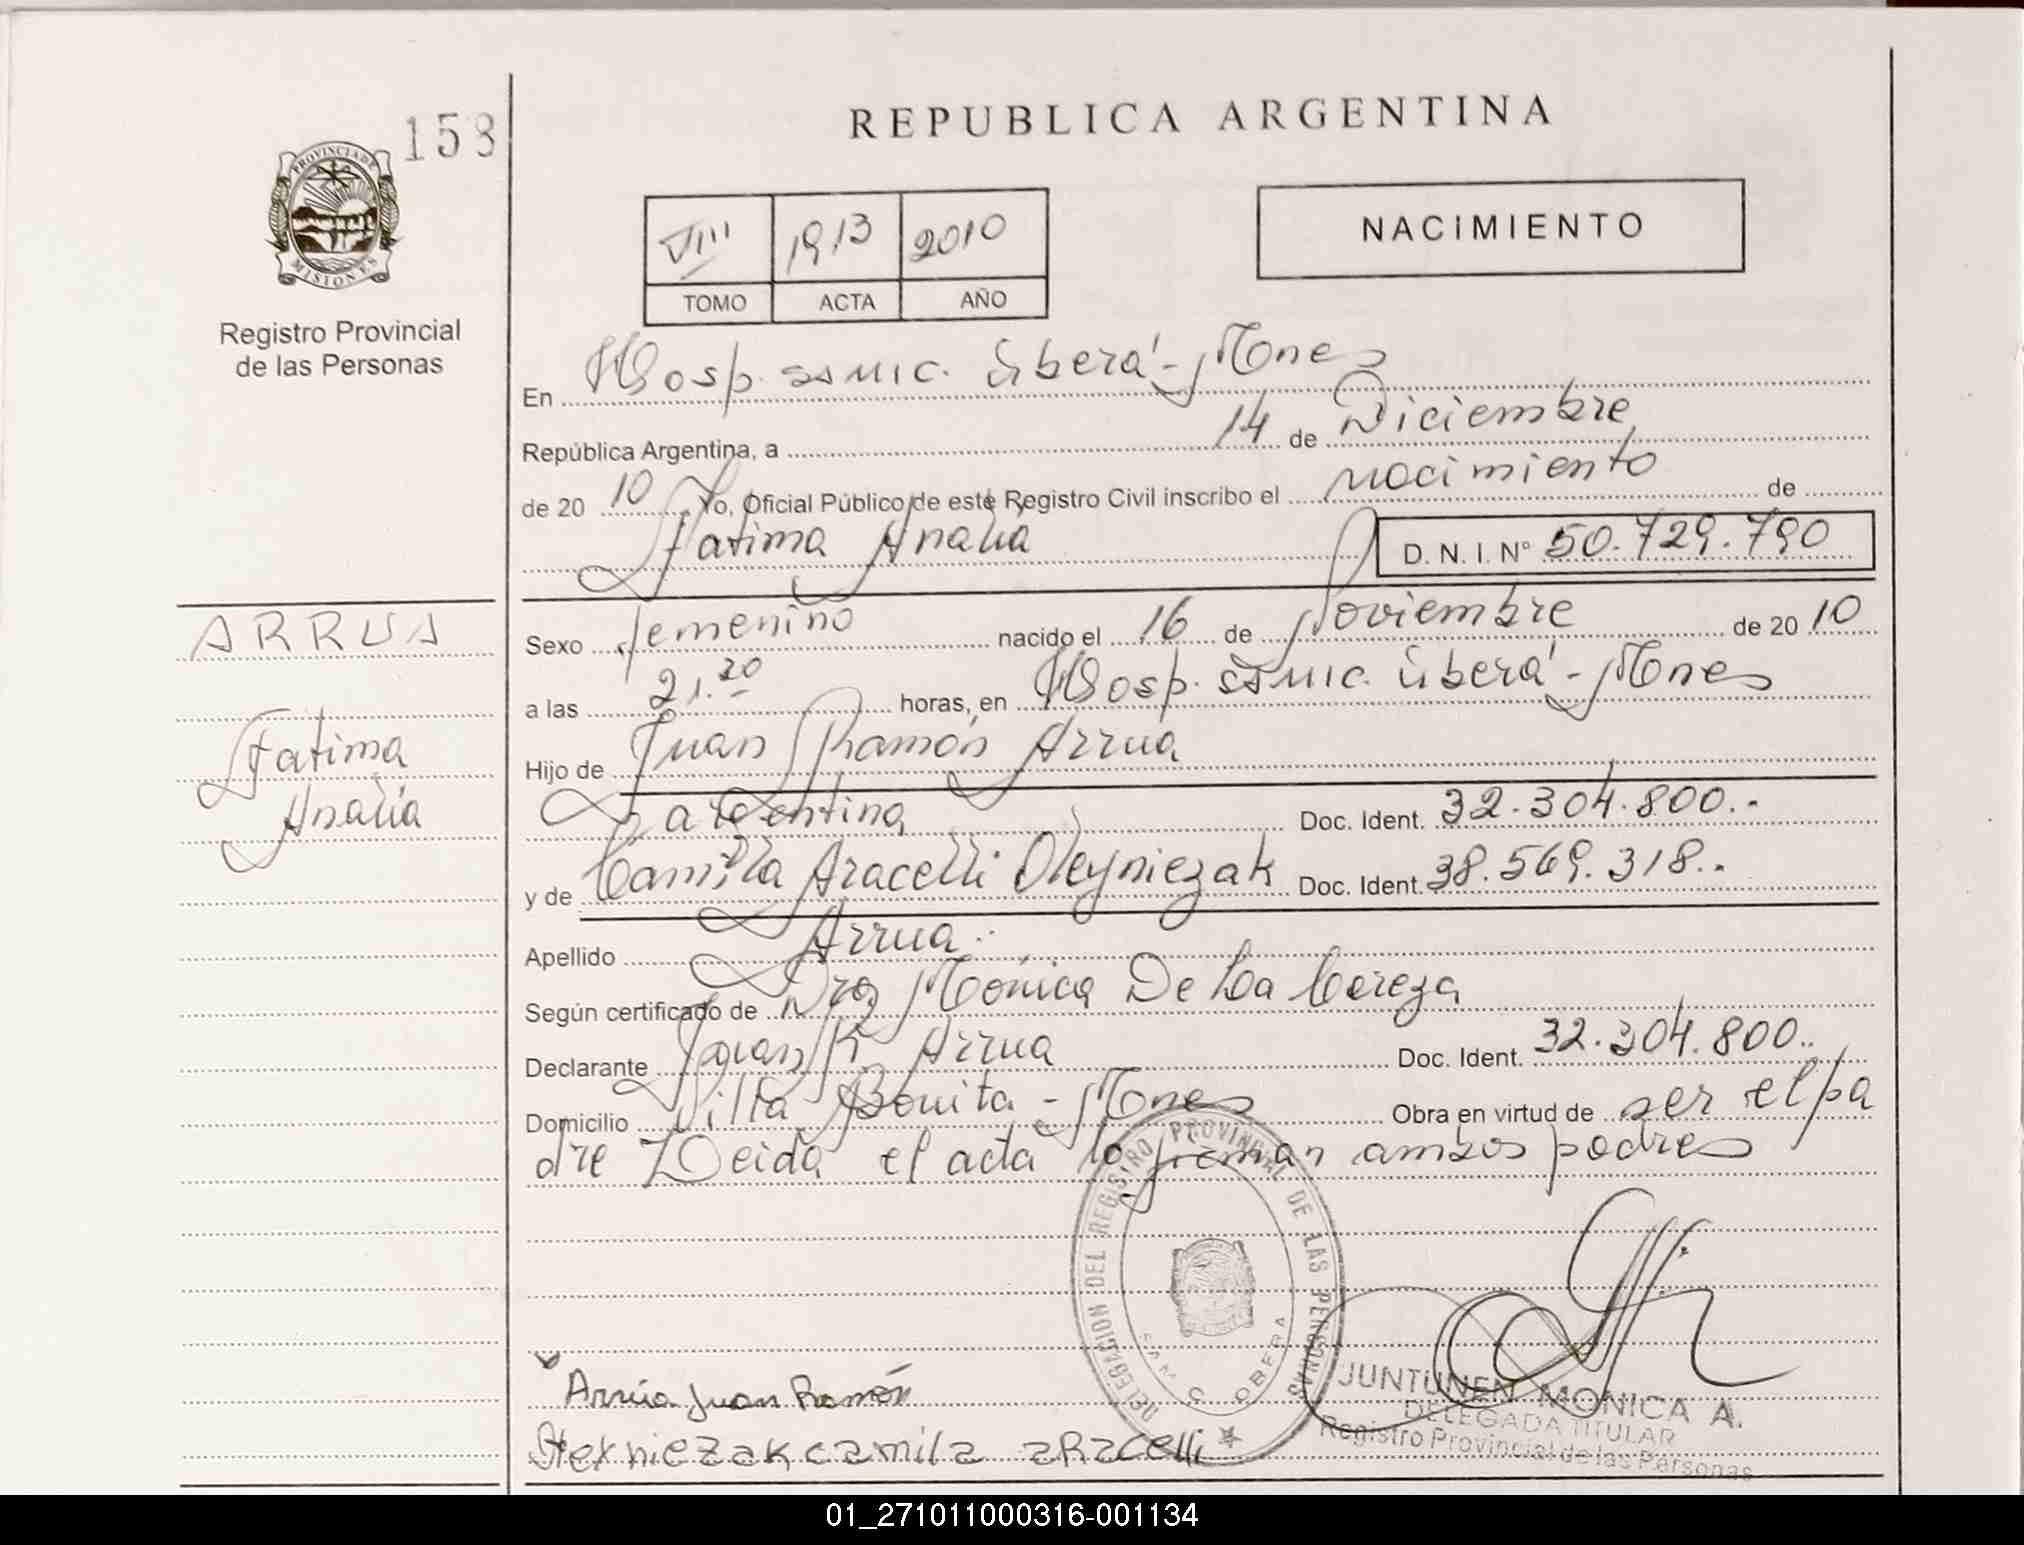 158
PROVINCIA DE
MISIONES
Registro Provincial
de las Personas
REPUBLICA ARGENTINA
VIII 1913 2010
TOMO ACTA AÑO
NACIMIENTO
En Hosp. SAMIC. Oberá - Mnes
República Argentina, a 14 de Diciembre
de 20 10 Yo, Oficial Público de este Registro Civil inscribo el nacimiento de
Fatima Analia D. N. I. Nº 50.729.790
ARRUA
Fatima
Analia
Sexo femenino nacido el 16 de Noviembre de 20 10
a las 21.20 horas, en Hosp. SAMIC. Oberá - Mnes
Hijo de Juan Ramón Arrua
argentina Doc. Ident. 32.304.800.-
y de Camila Aracelli Oleyniezak Doc. Ident. 38.569.318.-
Apellido Arrua.-
Según certificado de Dra Mónica De La
Declarante Juan R. Arrua Doc. Ident. 32.304.800.
Domicilio Villa Bonita - Mnes Obra en virtud de ser el pa
dre Leida el acta la firman ambos padres
DELEGACION DEL REGISTRO PROVINCIAL DE LAS PERSONAS
OBERA
Arrúa Juan Ramón
camila aracelli
JUNTUNEN MONICA A.
DELEGADA TITULAR
Registro Provincial de las Personas
01_271011000316-001134